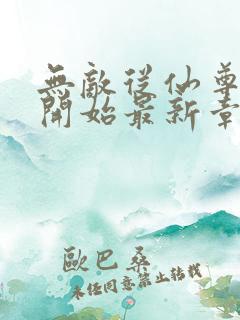 無敵從仙尊
開始最新章
歐巴桑
未經同意禁止轉載